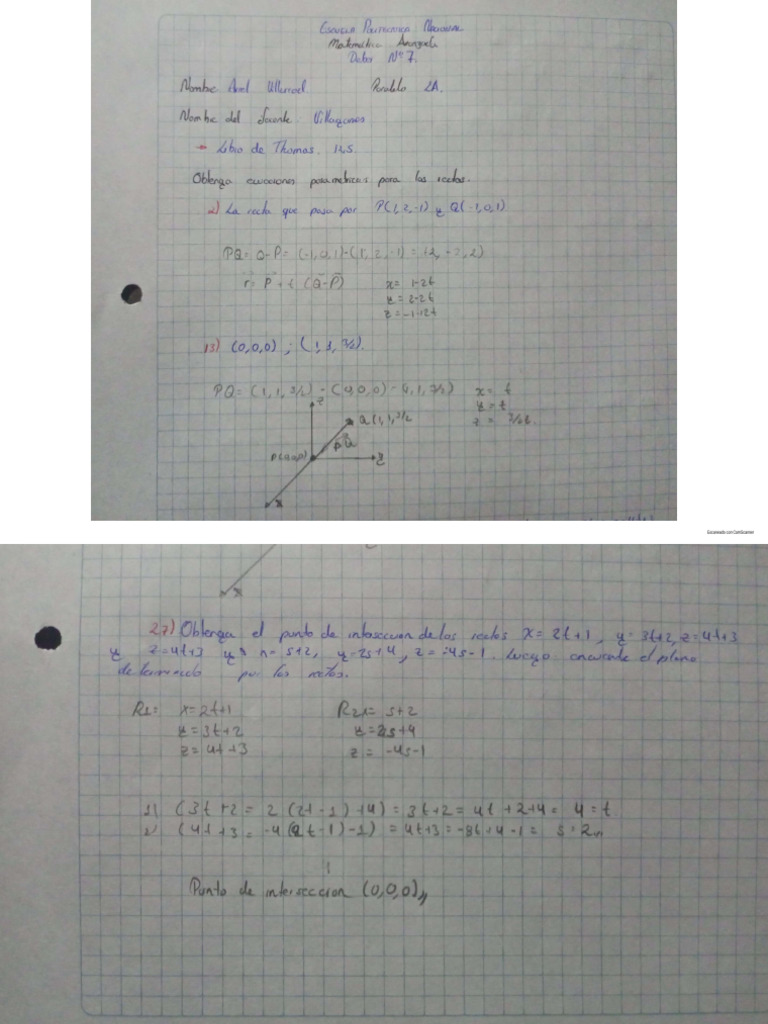 Escuela Politecnica Nacional
Matemática Avanzada
Deber Nº 7.
Nombre Axel Villarroel Paralelo 2A.
Nombre del Docente Villagomes
→ Libro de Thomas. 12,5
Obtenga ecuaciones parametricas para las rectas.
2) La recta que pasa por P(1,2,-1) y Q(-1,0,1)
PQ= Q-P= (-1,0,1)-(1,2,-1) = (-2,-2,2)
r= P + t (Q-P) x= 1-2t
y= 2-2t
z= -1+2t
13) (0,0,0) ; (1,1,3/2).
PQ= (1,1,3/2) - (0,0,0) = (1,1,3/2) x= t
y= t
z= 3/2t.
z
Q(1,1,3/2
PQ
P(0,0,0)
y
x
Escaneado con CamScanner
x
27) Obtenga el punto de interseccion de las rectas x= 2t+1, y= 3t+2, z=4t+3
y z=4t+3 y x= s+2, y=2s+4, z=-4s-1. Luego encuentre el plano
determinado por las rectas.
R1= x=2t+1 R2x= s+2
y=3t+2 y=2s+4
z=4t+3 z= -4s-1
1) (3t+2 = 2 (2t-1)+4) = 3t+2 = 4t+2+4= 4=t
2) (4t+3= -4 (2t-1)-1) = 4t+3=-8t+4-1= s=2
Punto de interseccion (0,0,0)